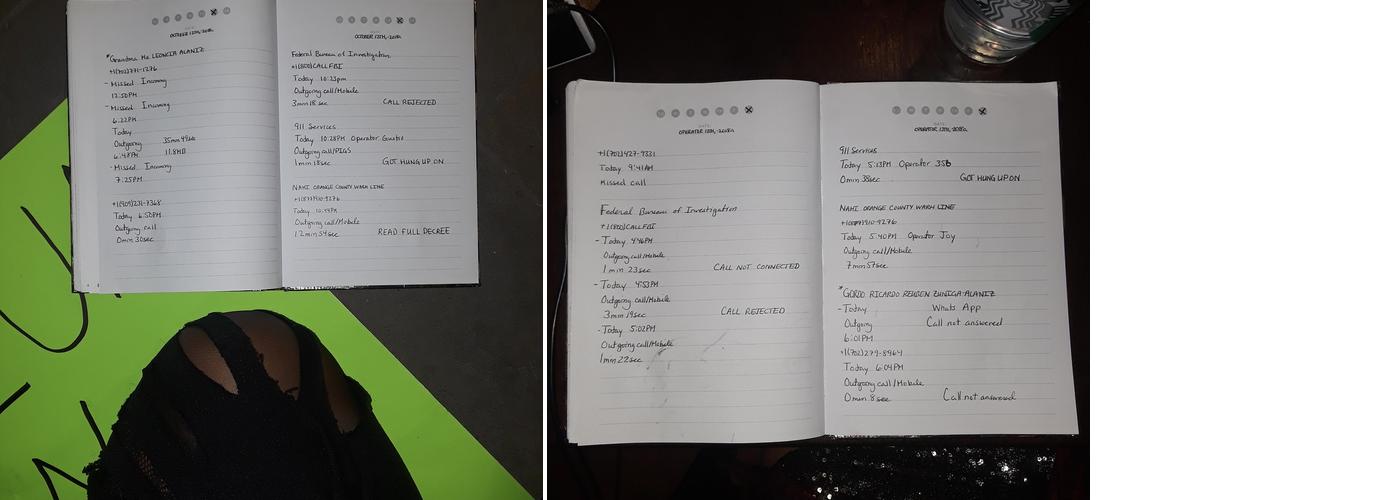 OCTOBER 12TH, 2018
*Grandma Ma LEONCIA ALANIZ
+1(702)771-1276
- Missed Incoming
12:50PM
- Missed Incoming
6:22PM
Today
Outgoing 35min 49sec
6:48PM 11.8MB
- Missed Incoming
7:25PM
+1(909)231-7368
Today 6:50PM
Outgoing call
0min 30sec
OCTOBER 12TH, 2018
Federal Bureau of Investigation
+1(800)CALLFBI
Today 10:23pm
Outgoing call/Mobile
3min 18 sec CALL REJECTED
911 Services
Today 10:28PM Operator
Outgoing call/PIGS
1min 18sec GOT HUNG UP ON
NAMI ORANGE COUNTY WARM LINE
+1(877)910-9276
Today
Outgoing call/Mobile
12min 54sec READ FULL DECREE
+1(702)427-9331
Today 9:41AM
Missed call
Federal Bureau of Investigation
+1(800)CALLFBI
- Today 4:46PM
Outgoing call/Mobile
1min 23sec CALL NOT CONNECTED
- Today 4:53PM
Outgoing call/Mobile
3min 19sec CALL REJECTED
- Today 5:02PM
Outgoing call/Mobile
1min 22sec
DATE:
911 Services
Today 5:13PM Operator 356
0min 38sec GOT HUNG UP ON
NAMI ORANGE COUNTY WARM LINE
+1(877)910-9276
Today 5:40PM Operator Joy
Outgoing call/Mobile
7min 57sec
*GORDO RICARDO REUBEN ZUNIGA-ALANIZ
- Today Whats App
Outgoing Call not answered
6:01PM
+1(702)279-8964
Today 6:04PM
Outgoing call/Mobile
0min 8sec Call not answered